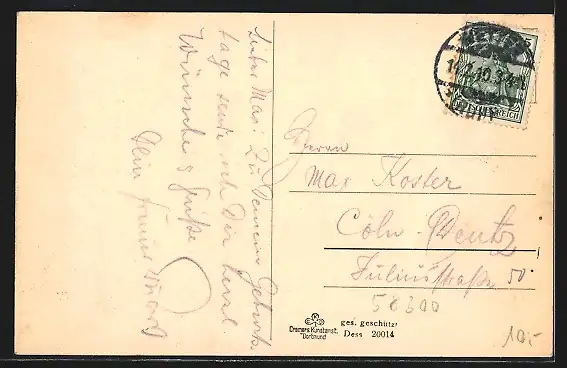 Lieber Max! Zu Deinem Geburts-
tage sende ich Dir herzl.
Wünsche & Grüße
Dein
Herrn
Max Koster
Cöln-Deutz
Juliusstraße 50
58300
5
DEUTSCHES REICH
Cramers Kunstanst.
Dortmund
ges. geschützt
Dess 20014
10,-